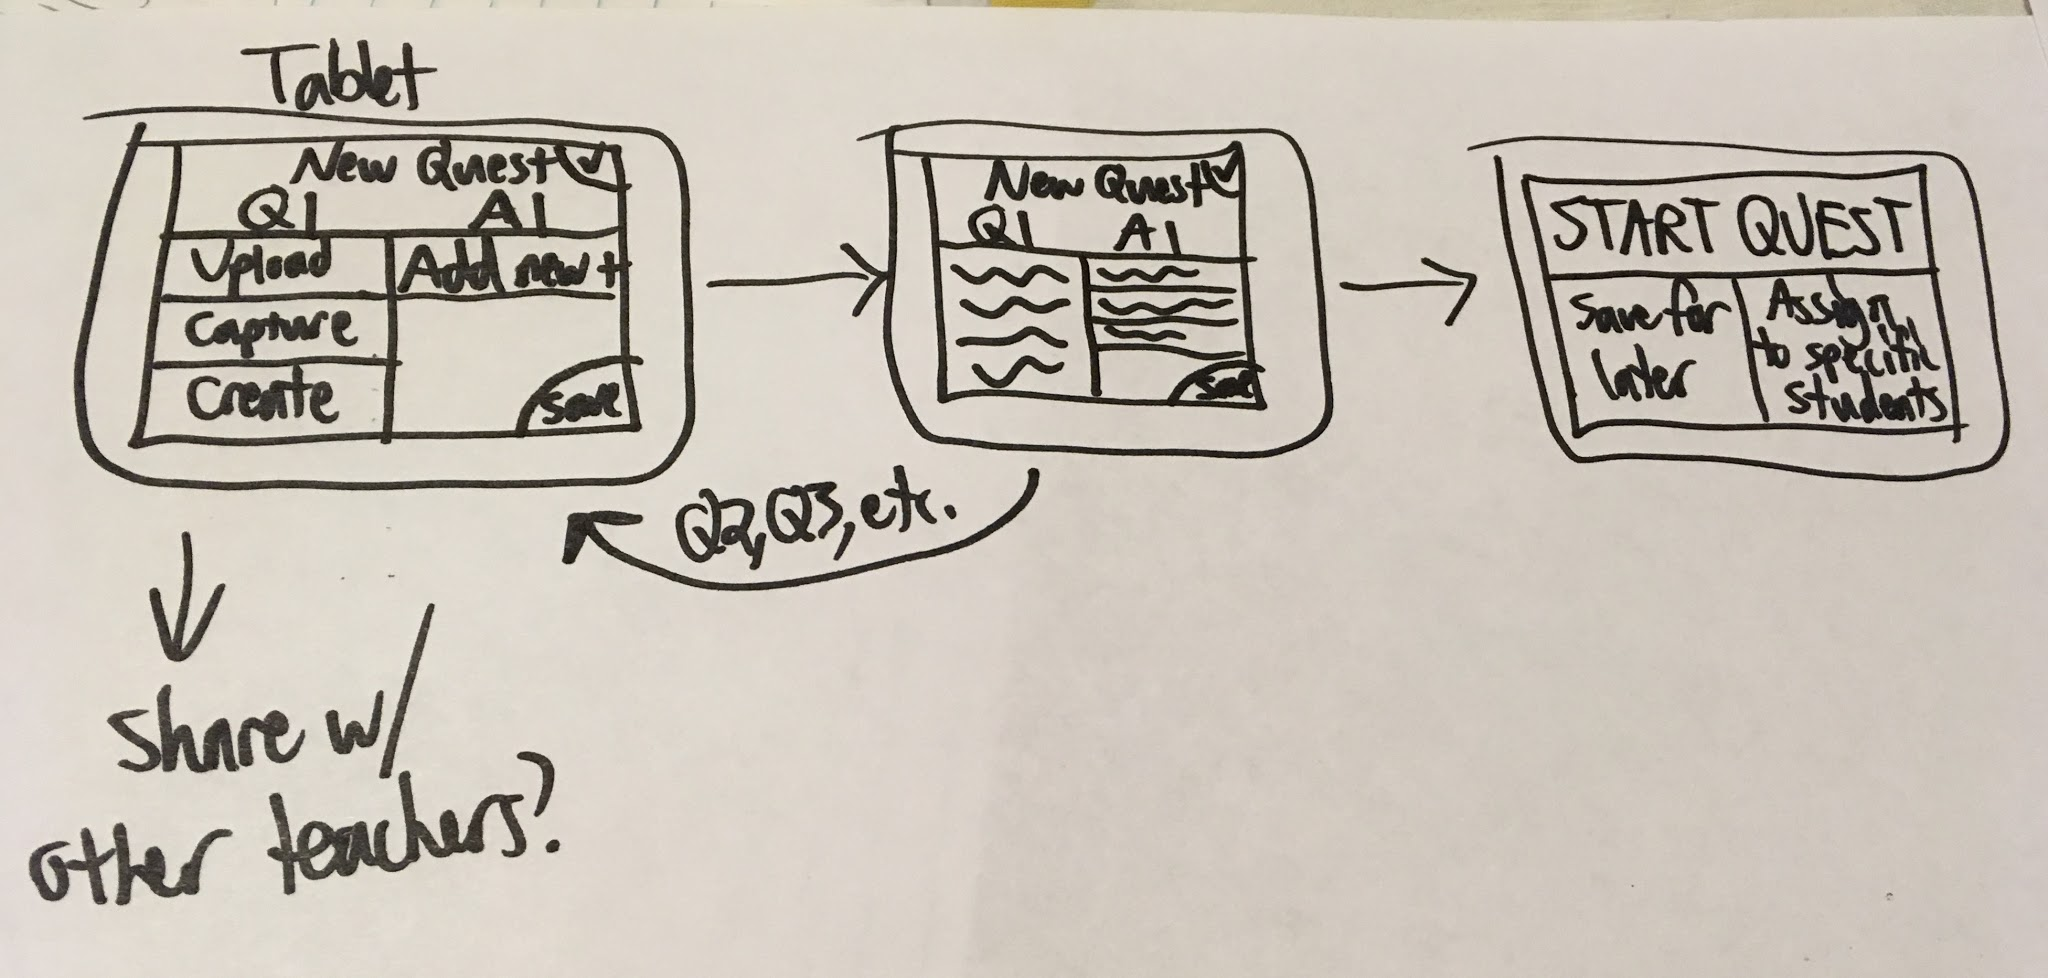 Tablet
New Quest
Q1 A1
Upload
Add new +
Capture
Create
Save
New Quest
Q1 A1
Save
START QUEST
Save for
later
Assign
to specific
students
Q2, Q3, etc.
Share w/
other teachers?